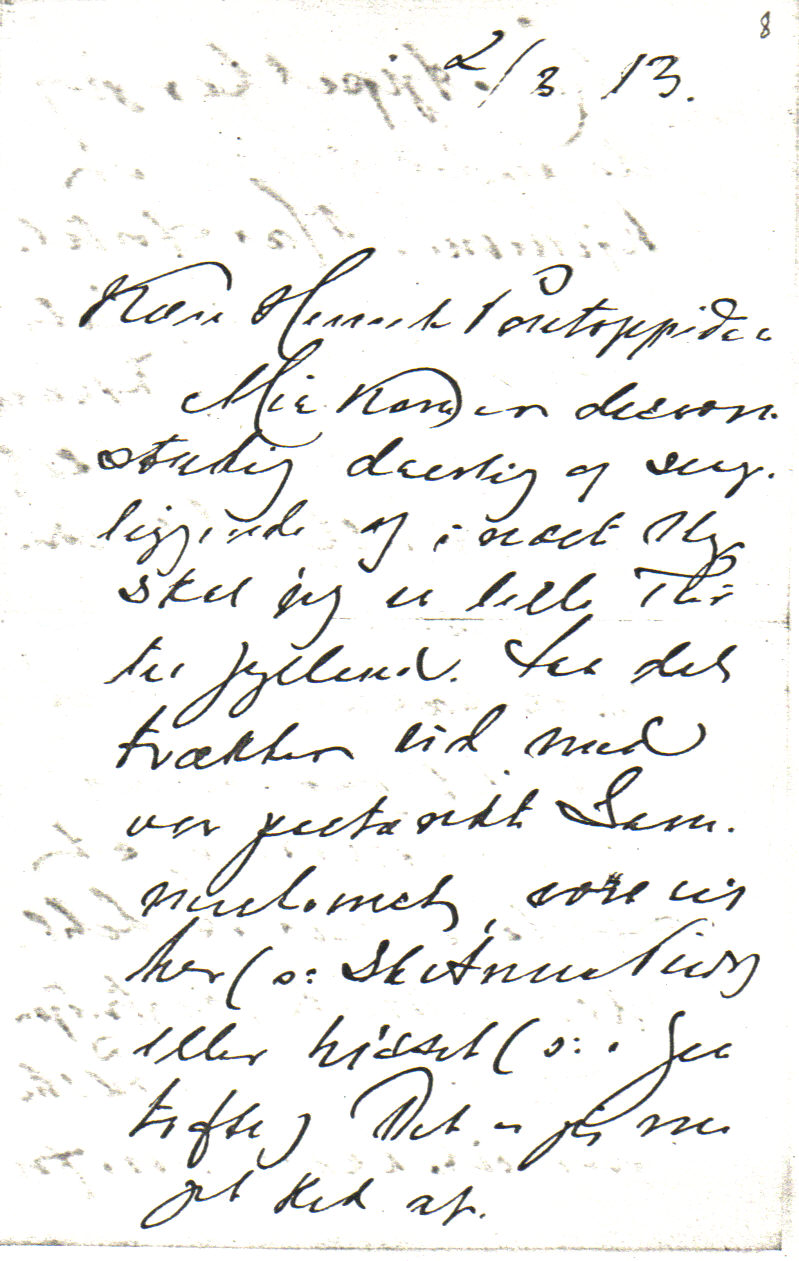 8
2/3 13.
Kære Henrik Pontoppidan
Min Kone er
stadig daarlig og seng-
liggende og i næst Uge
skal jeg en lille Tur
til Jylland. Saa det
trækker ud med
vor paatænkte Sam-
menkomst, være sig
her (o: Skt Annæ Plads)
eller hisset (o: i Gen
tofte) Det er jeg me
get ked af.